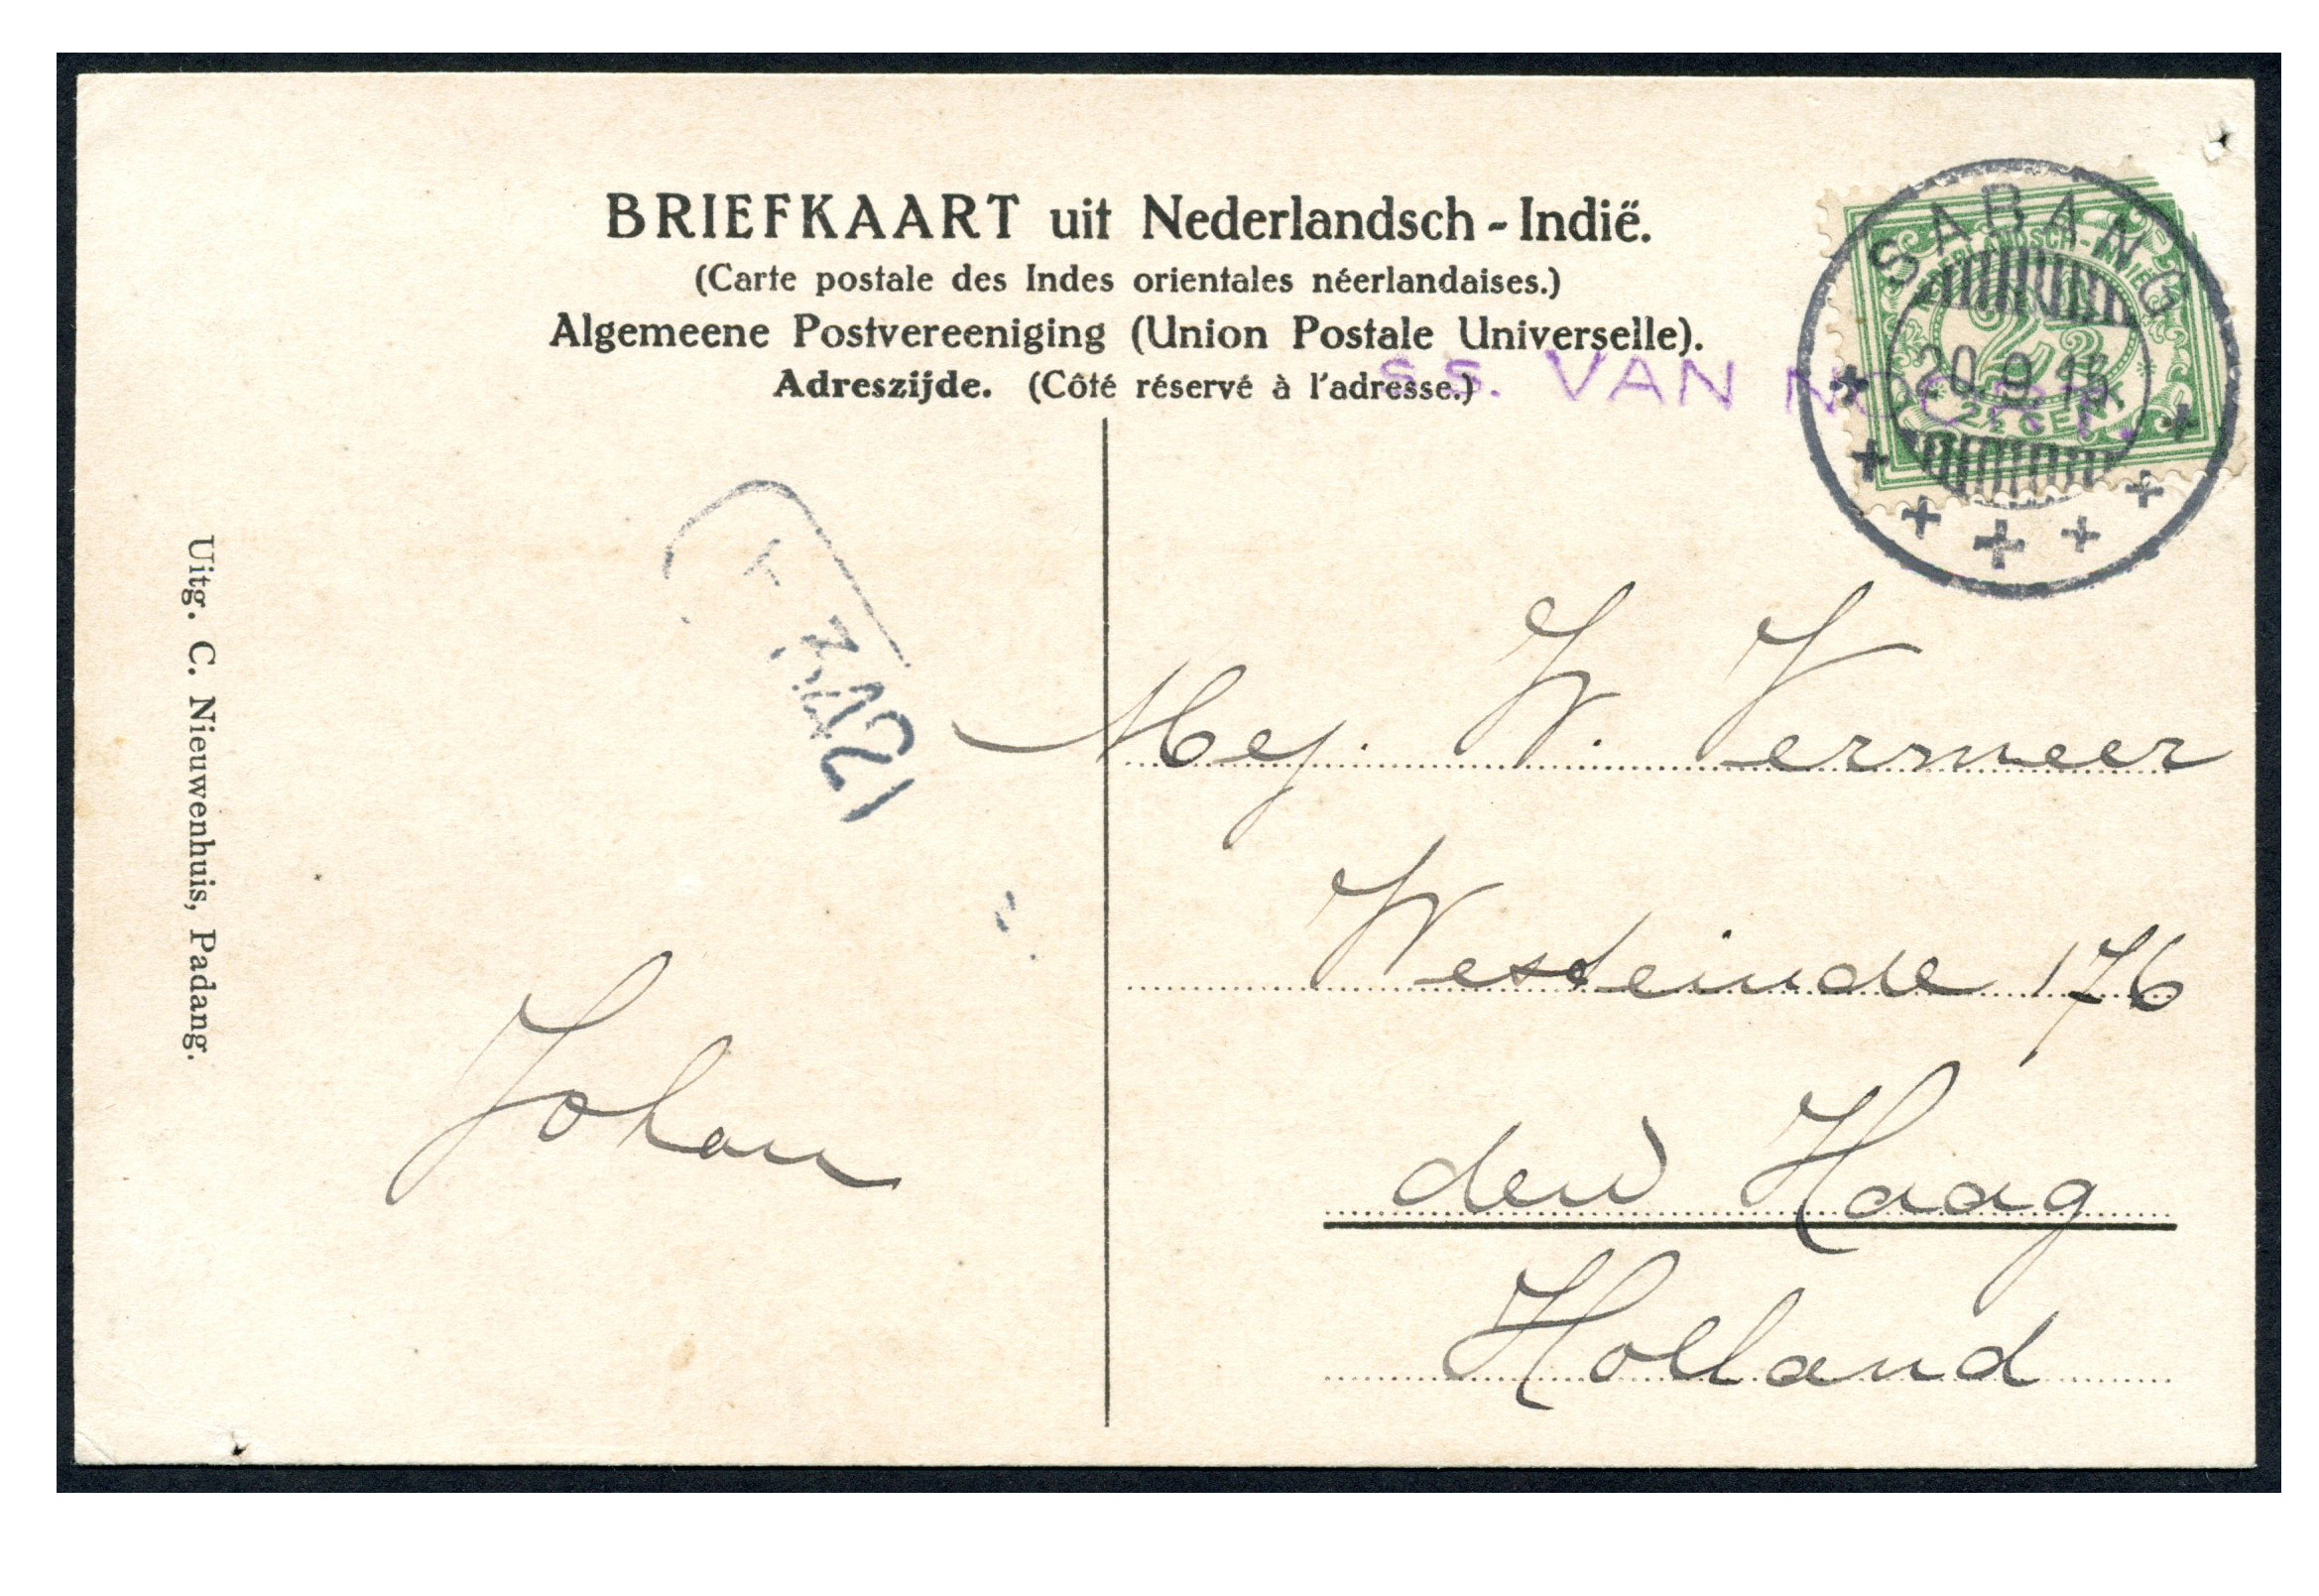 BRIEFKAART uit Nederlandsch-Indië.
(Carte postale des Indes orientales néerlandaises.)
Algemeene Postvereeniging (Union Postale Universelle).
Adreszijde. (Côté réservé à l'adresse.)
S.S. VAN NOORT.
SABANG
NEDERLANDSCH-INDIË
2½
20.9.15.
2½ CENT
Mej. W. Vermeer
Westeinde 176
den Haag
Holland
Johan
Uitg. C. Nieuwenhuis, Padang.